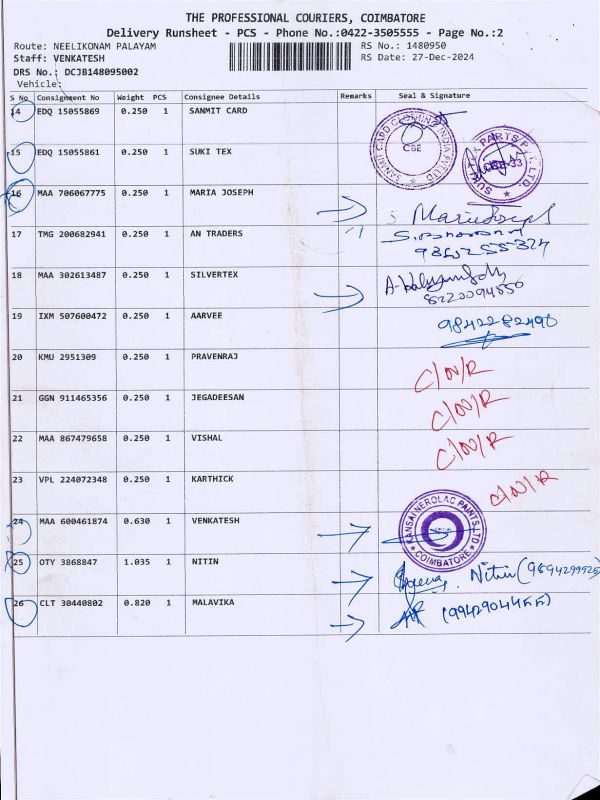 THE PROFESSIONAL COURIERS, COIMBATORE
Delivery Runsheet - PCS - Phone No.:0422-3505555 - Page No.:2
Route: NEELIKONAM PALAYAM RS No.: 1480950
Staff: VENKATESH RS Date: 27-Dec-2024
DRS No.: DCJB148095002
Vehicle:
S No Consignment No Weight PCS Consignee Details Remarks Seal & Signature
14 EDQ 15055869 0.250 1 SANMIT CARD SANMIT CARD CLOTHING INDIA PVT LTD CBE
15 EDQ 15055861 0.250 1 SUKI TEX PARTS PVT. LTD.
16 MAA 706067775 0.250 1 MARIA JOSEPH Maria Joseph
17 TMG 200682941 0.250 1 AN TRADERS
18 MAA 302613487 0.250 1 SILVERTEX 8220094850
19 IXM 507600472 0.250 1 AARVEE 9842282490
20 KMU 2951309 0.250 1 PRAVENRAJ C/N/R
21 GGN 911465356 0.250 1 JEGADEESAN C/N/R
22 MAA 867479658 0.250 1 VISHAL C/N/R
23 VPL 224072348 0.250 1 KARTHICK C/N/R
24 MAA 600461874 0.630 1 VENKATESH KANSAI NEROLAC PAINTS LTD COIMBATORE
25 OTY 3868847 1.035 1 NITIN Nitin
26 CLT 30440802 0.820 1 MALAVIKA (9942904455)